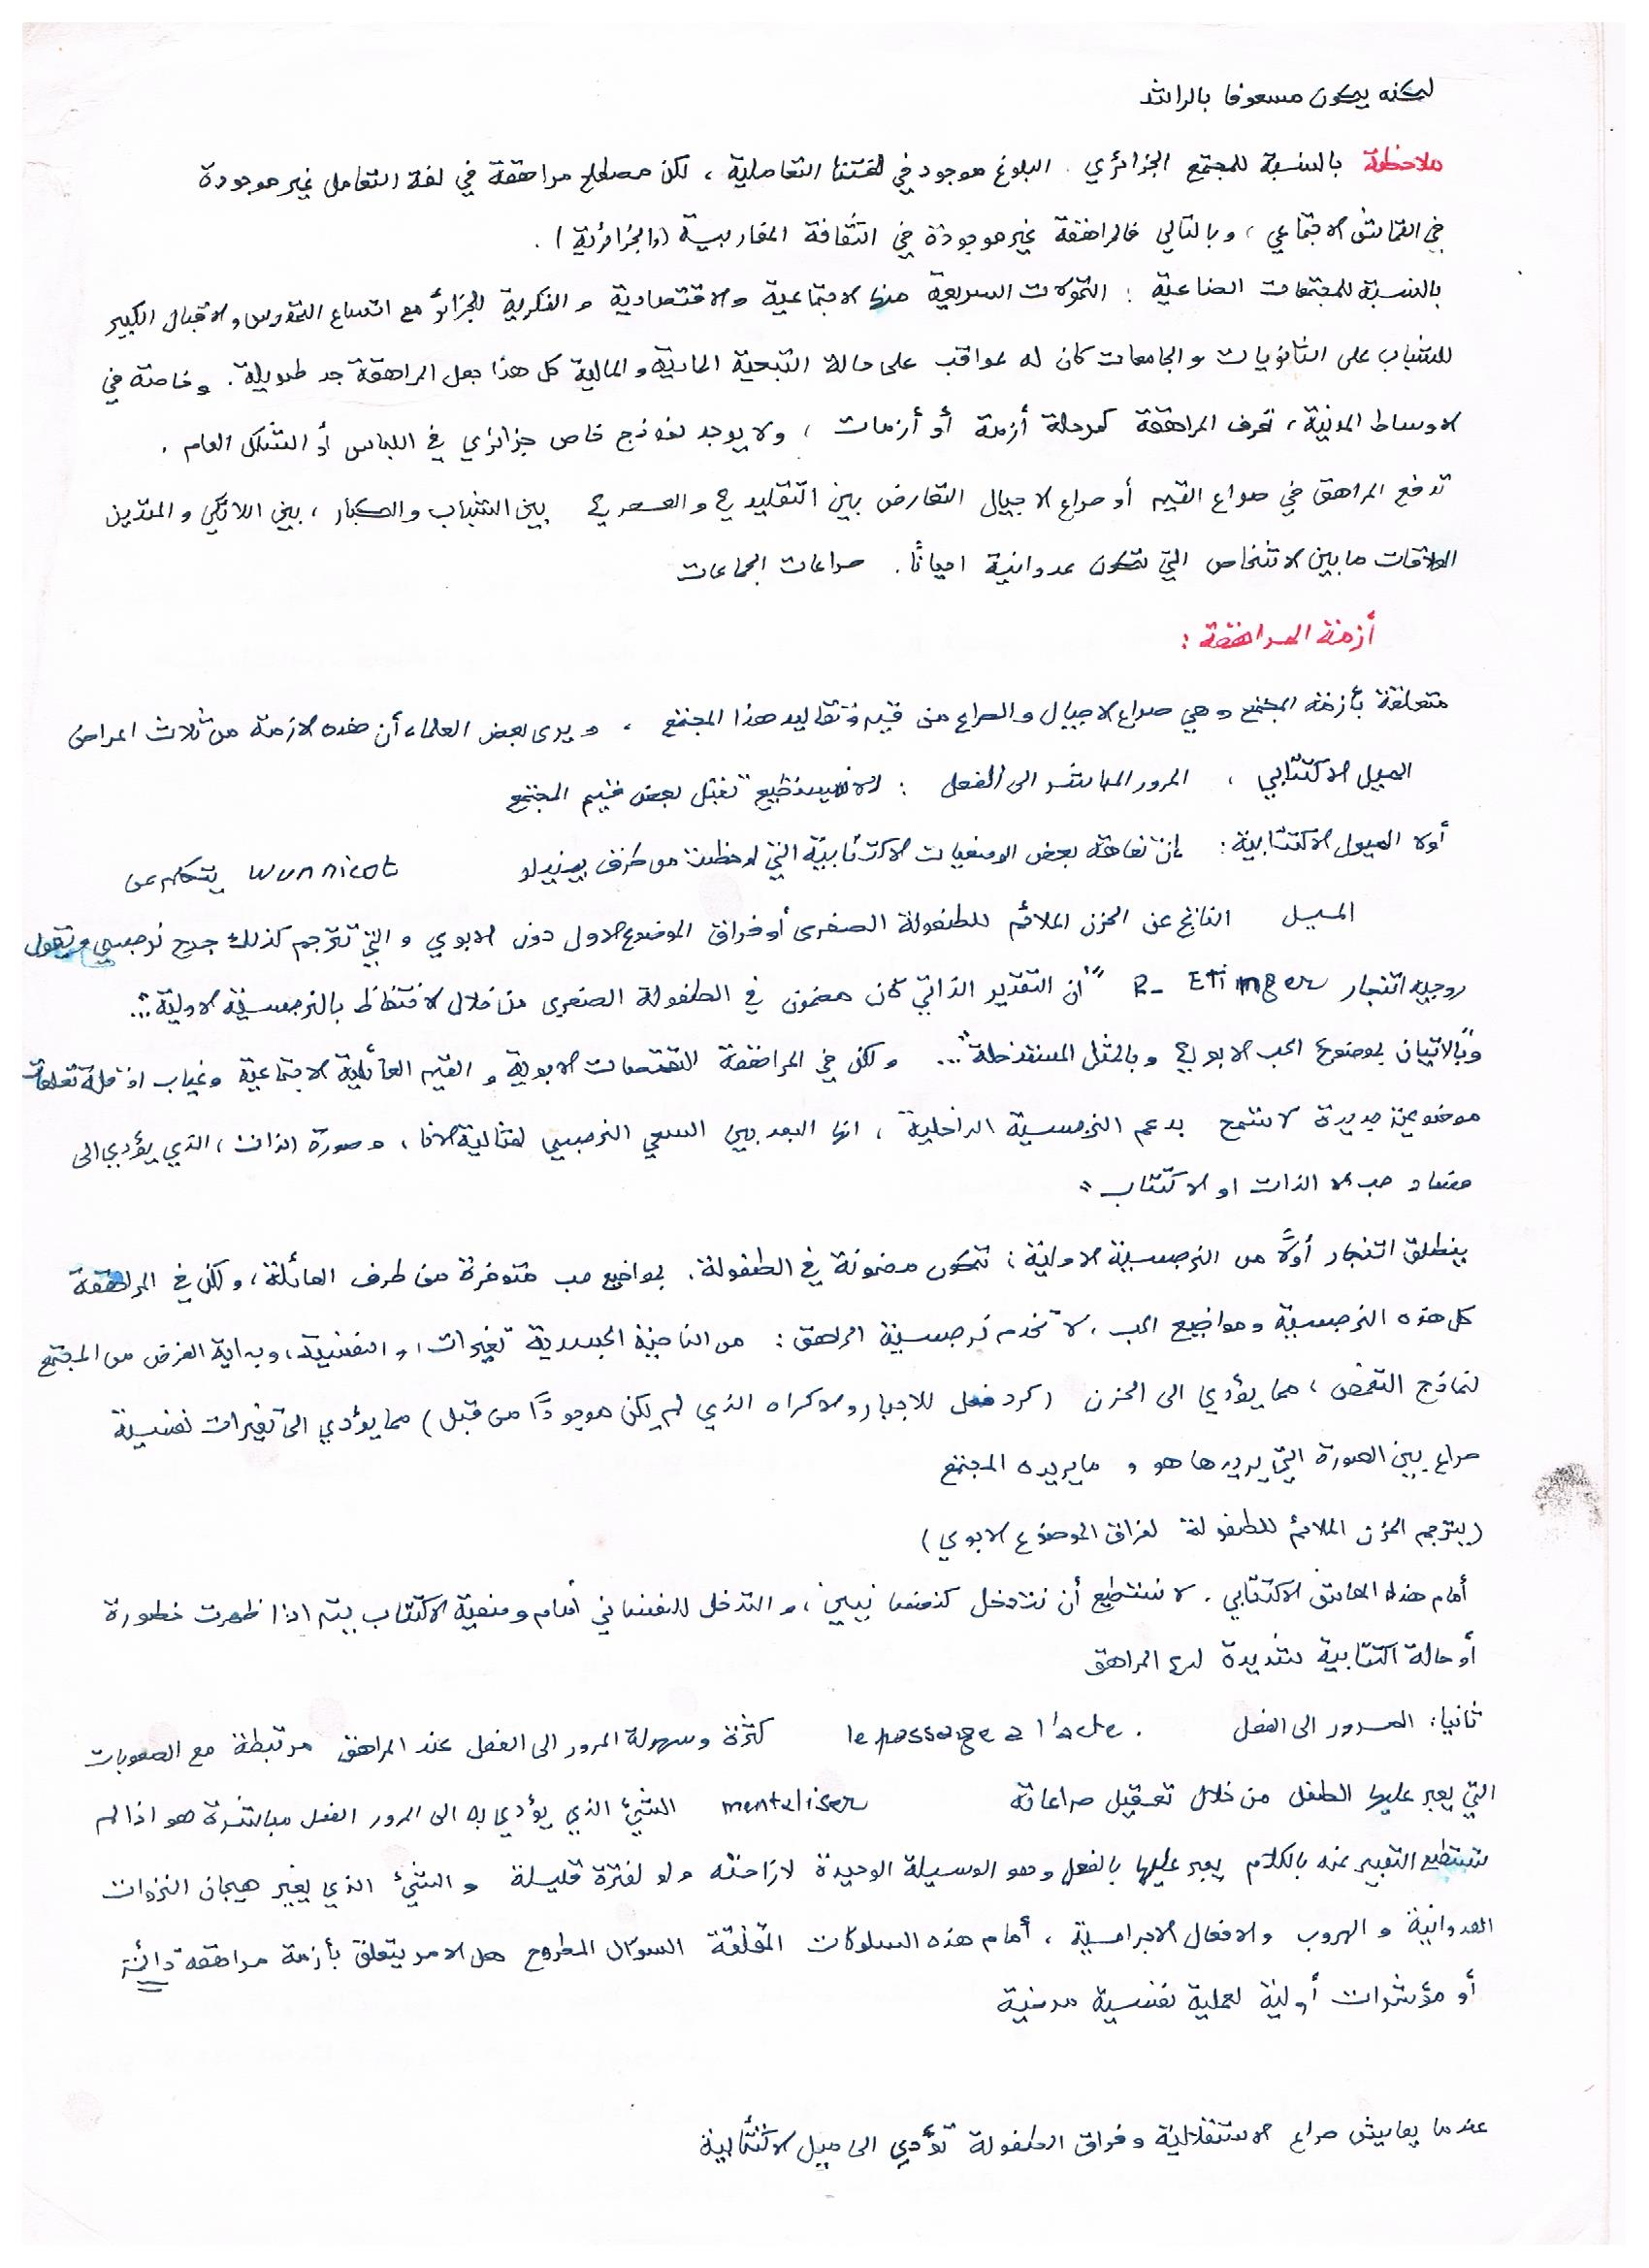 لكنه يكون مسعوفا بالراشد
ملاحظة بالنسبة للمجتمع الجزائري . البلوغ موجود في لغتنا التعاملية ، لكن مصطلح مراهقة في لغة التعامل غير موجودة
في القماش الاجتماعي ، وبالتالي فالمراهقة غير موجودة في الثقافة المغاربية (والجزائرية) .
بالنسبة للمجتمعات الصناعية : التحولات السريعة منها الاجتماعية والاقتصادية و الفكرية للجزائر مع اتساع التمدرس والاقبال الكبير
للشباب على الثانويات والجامعات كان له عواقب على حالة التبعية المادية و المالية كل هذا جعل المراهقة جد طويلة . وخاصة في
الاوساط المدنية ، تعرف المراهقة كمرحلة أزمة أو أزمات ، ولا يوجد نموذج خاص جزائري في اللباس أو الشكل العام .
تدفع المراهق في صراع القيم أو صراع الاجيال التعارض بين التقليدي والعصري بين الشباب والكبار ، بين اللائكي و المتدين
العلاقات ما بين الاشخاص التي تكون عدوانية احيانًا . صراعات الجماعات
أزمة المراهقة :
متعلقة بأزمة المجتمع وهي صراع الاجيال والصراع من قيم وتقاليد هذا المجتمع ، ويرى بعض العلماء أن هذه الازمة من ثلاث اعراض
الميل الاكتئابي ، المرور المباشر الى الفعل : تقبل بعض قيم المجتمع
أولا الميول الاكتئابية : إن تفاهة بعض الوضعيات الاكتئابية التي لوحظت من طرف wunnicot يتكلم عن
الميل الناتج عن الحزن الملائم للطفولة الصغرى أو فراق الموضوع الاول دون الابوي و التي تترجم كذلك جرح نرجسي وتقول
روجيه اتنجار R- Etinger " أن التقدير الذاتي كان مضمون في الطفولة الصغرى من خلال الاحتفاظ بالنرجسية الاولية ...
وبالاتيان بموضوع الحب الابوي وبالمثل المستدخلة "... ولكن في المراهقة التقمصات الابوية و القيم العائلية الاجتماعية وغياب او قلة تعلقات
موضوعية جديدة لا تسمح بدعم النرجسية الداخلية ، انها البعد بين السعي النرجسي لمثالية الانا ، وصورة الذات ، الذي يؤدي الى
مضاد حب الذات او الاكتئاب "
ينطلق اتنجار أولاً من النرجسية الاولية : تكون مضمونة في الطفولة . بمواضيع حب متوفرة من طرف العائلة ، ولكن في المراهقة
كل هذه النرجسية ومواضيع الحب ، لا تخدم نرجسية المراهق : من الناحية الجسدية تغيرات ، و النفسية ، وبداية الفرض من المجتمع
لنماذج التقمص ، مما يؤدي الى الحزن (كرد فعل للاجبار والاكراه الذي لم يكن موجودًا من قبل) مما يؤدي الى تغيرات نفسية
صراع بين الصورة التي يريدها هو و ما يريده المجتمع
(يترجم الحزن الملائم للطفولة لفراق الموضوع الابوي)
أمام هذا العائق الاكتئابي . لا نستطيع أن نتدخل كنفسانيين ، و التدخل النفساني أمام وضعية الاكتئاب يتم اذا ظهرت خطورة
أو حالة اكتئابية شديدة لدى المراهق
ثانيا : المرور الى الفعل . le passage a l'acte كثرة وسهولة المرور الى الفعل عند المراهق مرتبطة مع الصعوبات
التي يعبر عليها الطفل من خلال تعقيل صراعاته mentaliser الشيئ الذي يؤدي به الى المرور الفعل مباشرة هو اذا لم
تستطيع التعبير عنه بالكلام يعبر عليها بالفعل وهو الوسيلة الوحيدة لازاحته ولو لفترة قليلة و الشيئ الذي يغير هيجان النزوات
العدوانية و الهروب والافعال الاجرامية ، أمام هذه السلوكات المقلقة السؤال المطروح هل الامر يتعلق بأزمة مراهقة
أو مؤشرات أولية لعملية نفسية مرضية
عندما يعايش صراع الاستقلالية وفراق الطفولة تؤدي الى ميل الاكتئابية